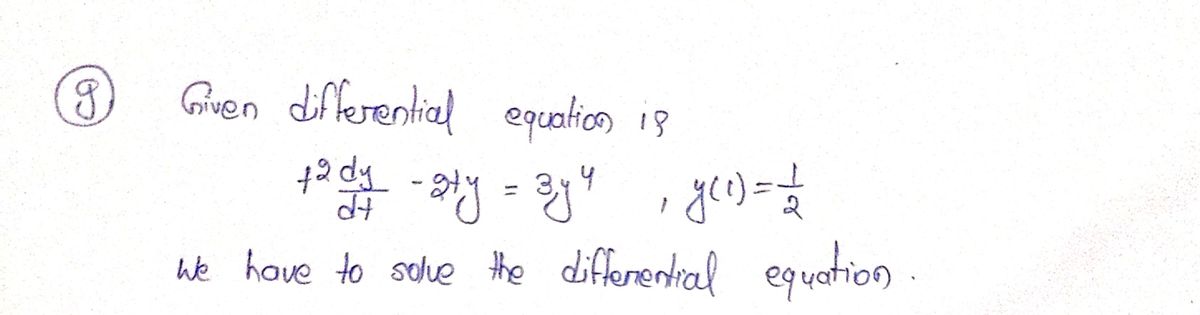 9 Given differential equation is
t² dy/dt - 2ty = 3y⁴ , y(1) = 1/2
We have to solve the differential equation.